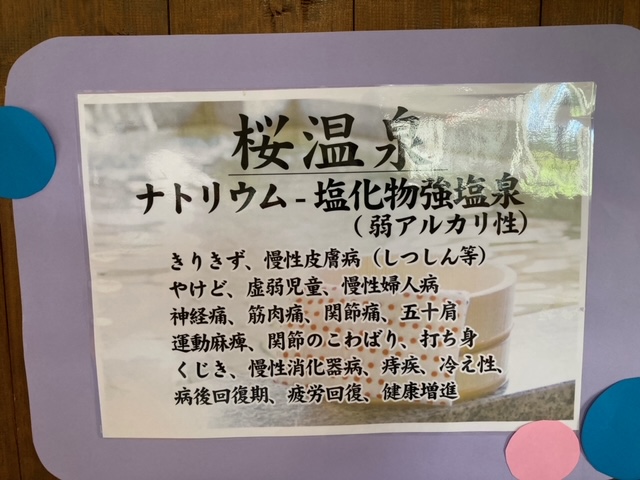 桜温泉
ナトリウム-塩化物強塩泉
(弱アルカリ性)
きりきず、慢性皮膚病(しつしん等)
やけど、虚弱児童、慢性婦人病
神経痛、筋肉痛、関節痛、五十肩
運動麻痺、関節のこわばり、打ち身
くじき、慢性消化器病、痔疾、冷え性、
病後回復期、疲労回復、健康増進